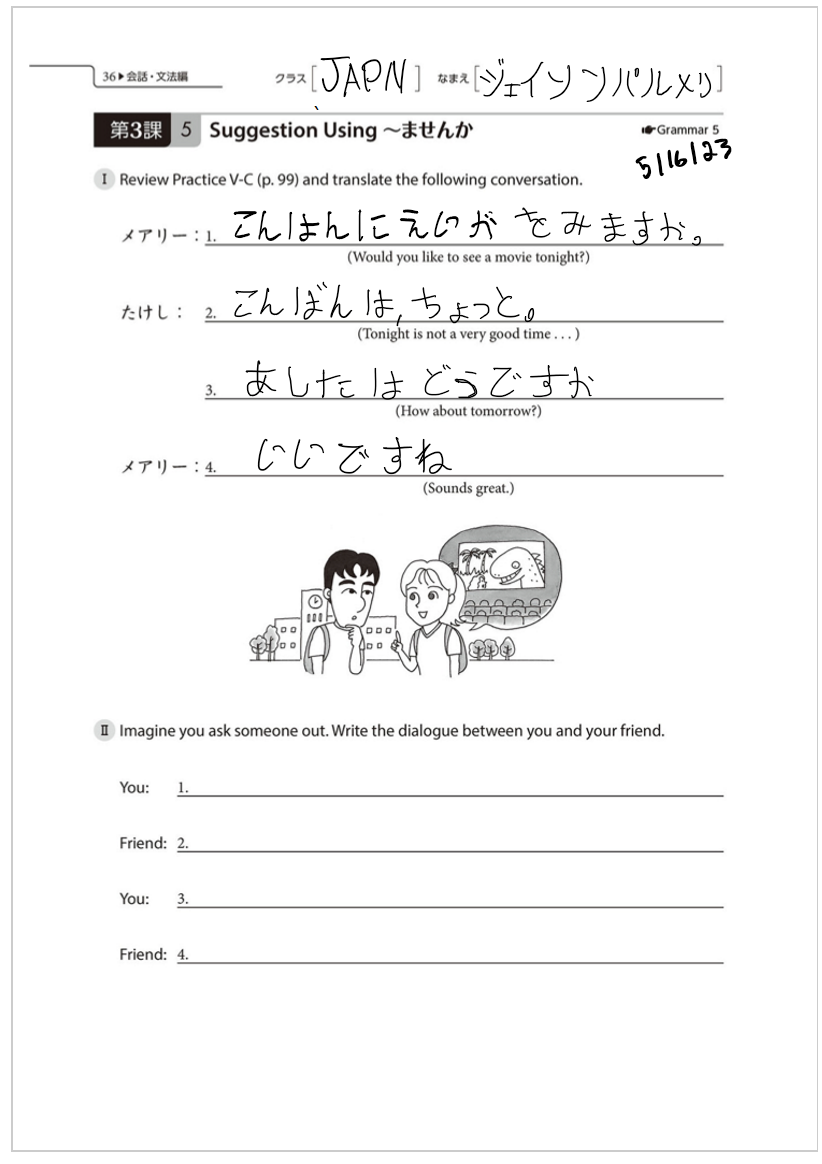 36▶会話・文法編 クラス[JAPN] なまえ[ジェイソンパルメリ]
第3課 5 Suggestion Using ～ませんか ☛Grammar 5
5/16/23
Ⅰ Review Practice V-C (p. 99) and translate the following conversation.
メアリー：1. こんはんにえいがをみますか。
(Would you like to see a movie tonight?)
たけし： 2. こんばんは,ちょっと。
(Tonight is not a very good time . . . )
3. あしたはどうですか
(How about tomorrow?)
メアリー：4. いいですね
(Sounds great.)
Ⅱ Imagine you ask someone out. Write the dialogue between you and your friend.
You: 1.
Friend: 2.
You: 3.
Friend: 4.